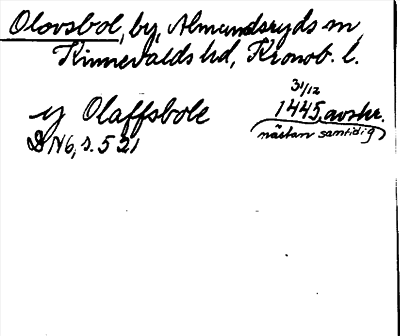 Olovsbol, by, Almundsryds sn,
Kinnevalds hd, Kronob. l.
31/12
y Olaffsbole 1445, avskr.
nästan samtidig
DN6, s. 521